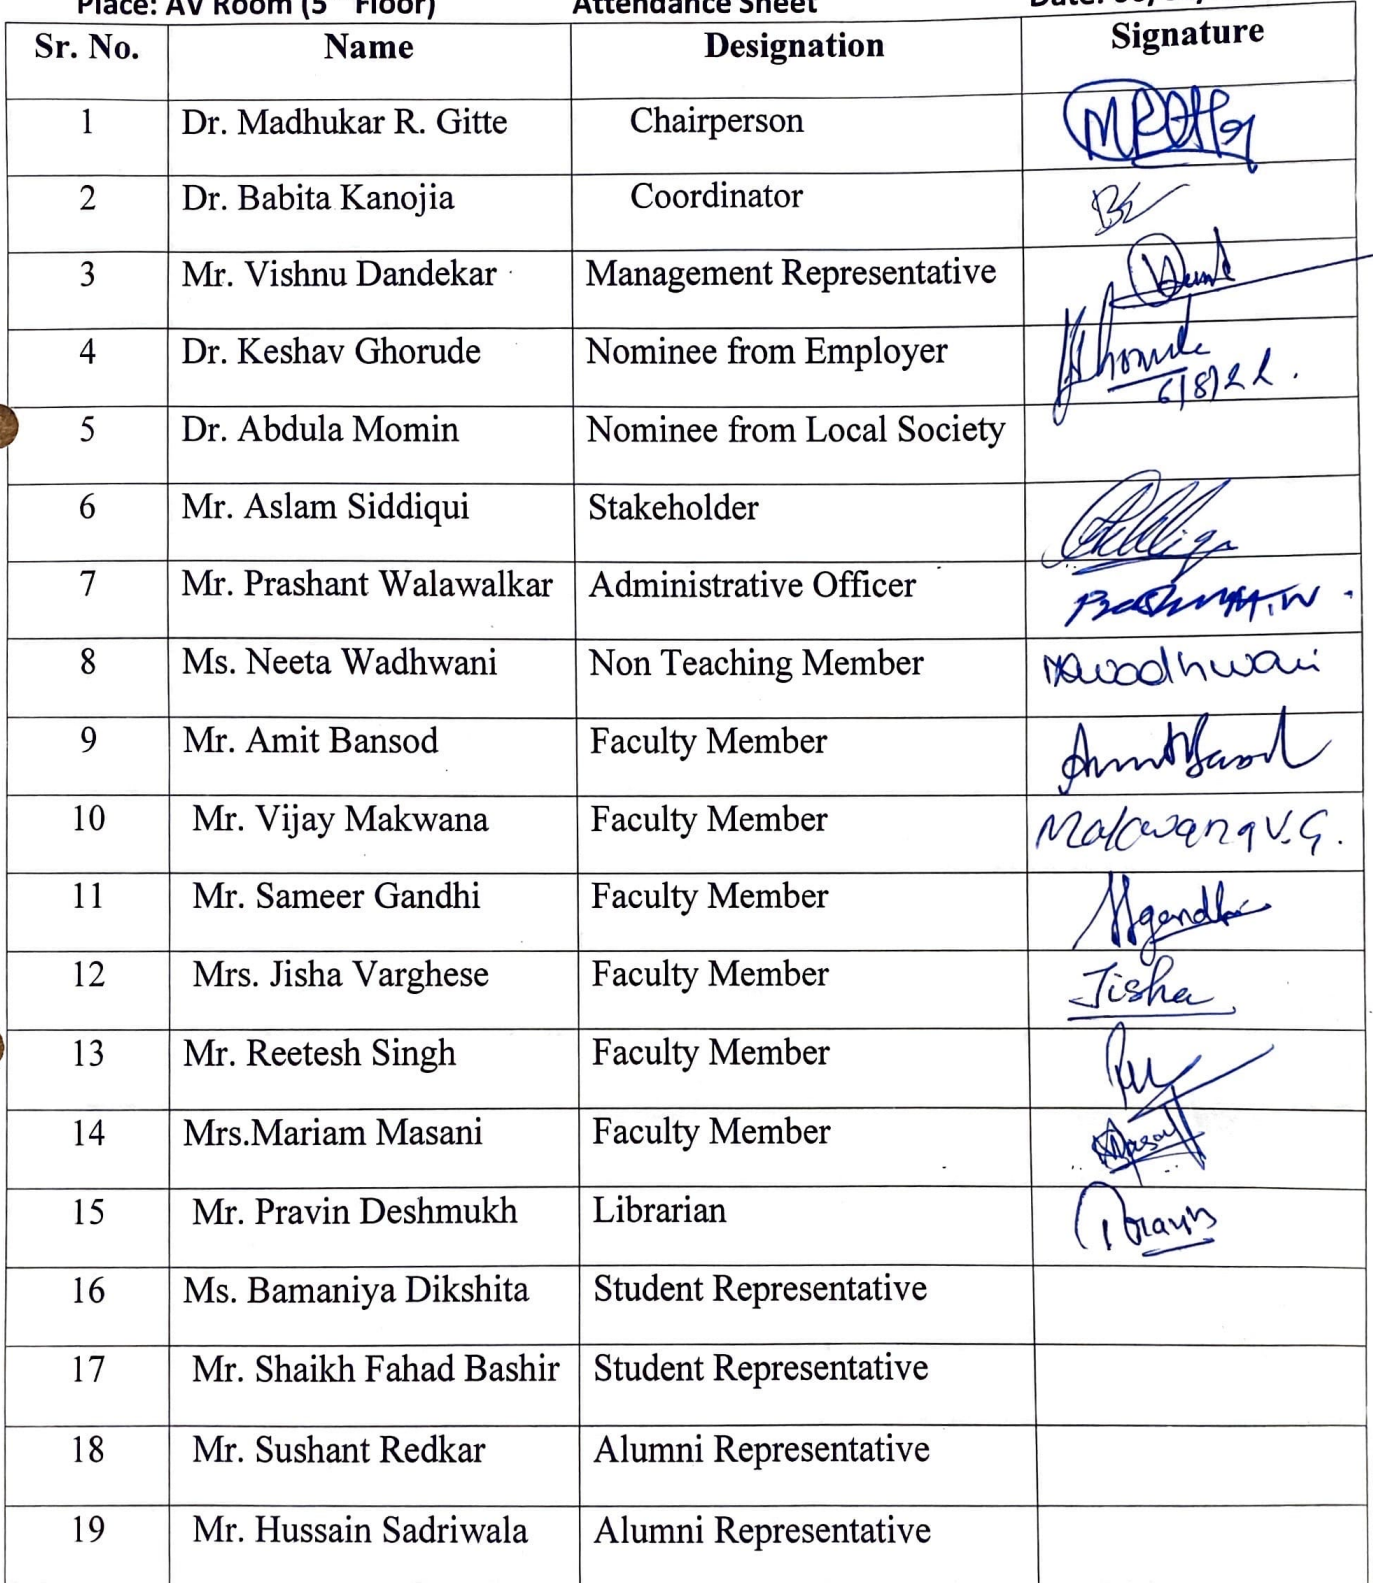 Place: AV Room (5 Floor) Attendance Sheet Date:
Sr. No. Name Designation Signature
1 Dr. Madhukar R. Gitte Chairperson
2 Dr. Babita Kanojia Coordinator
3 Mr. Vishnu Dandekar Management Representative
4 Dr. Keshav Ghorude Nominee from Employer
6/8/22.
5 Dr. Abdula Momin Nominee from Local Society
6 Mr. Aslam Siddiqui Stakeholder
7 Mr. Prashant Walawalkar Administrative Officer
8 Ms. Neeta Wadhwani Non Teaching Member
9 Mr. Amit Bansod Faculty Member
10 Mr. Vijay Makwana Faculty Member Makwana V.G.
11 Mr. Sameer Gandhi Faculty Member
12 Mrs. Jisha Varghese Faculty Member Jisha
13 Mr. Reetesh Singh Faculty Member
14 Mrs.Mariam Masani Faculty Member
15 Mr. Pravin Deshmukh Librarian
16 Ms. Bamaniya Dikshita Student Representative
17 Mr. Shaikh Fahad Bashir Student Representative
18 Mr. Sushant Redkar Alumni Representative
19 Mr. Hussain Sadriwala Alumni Representative